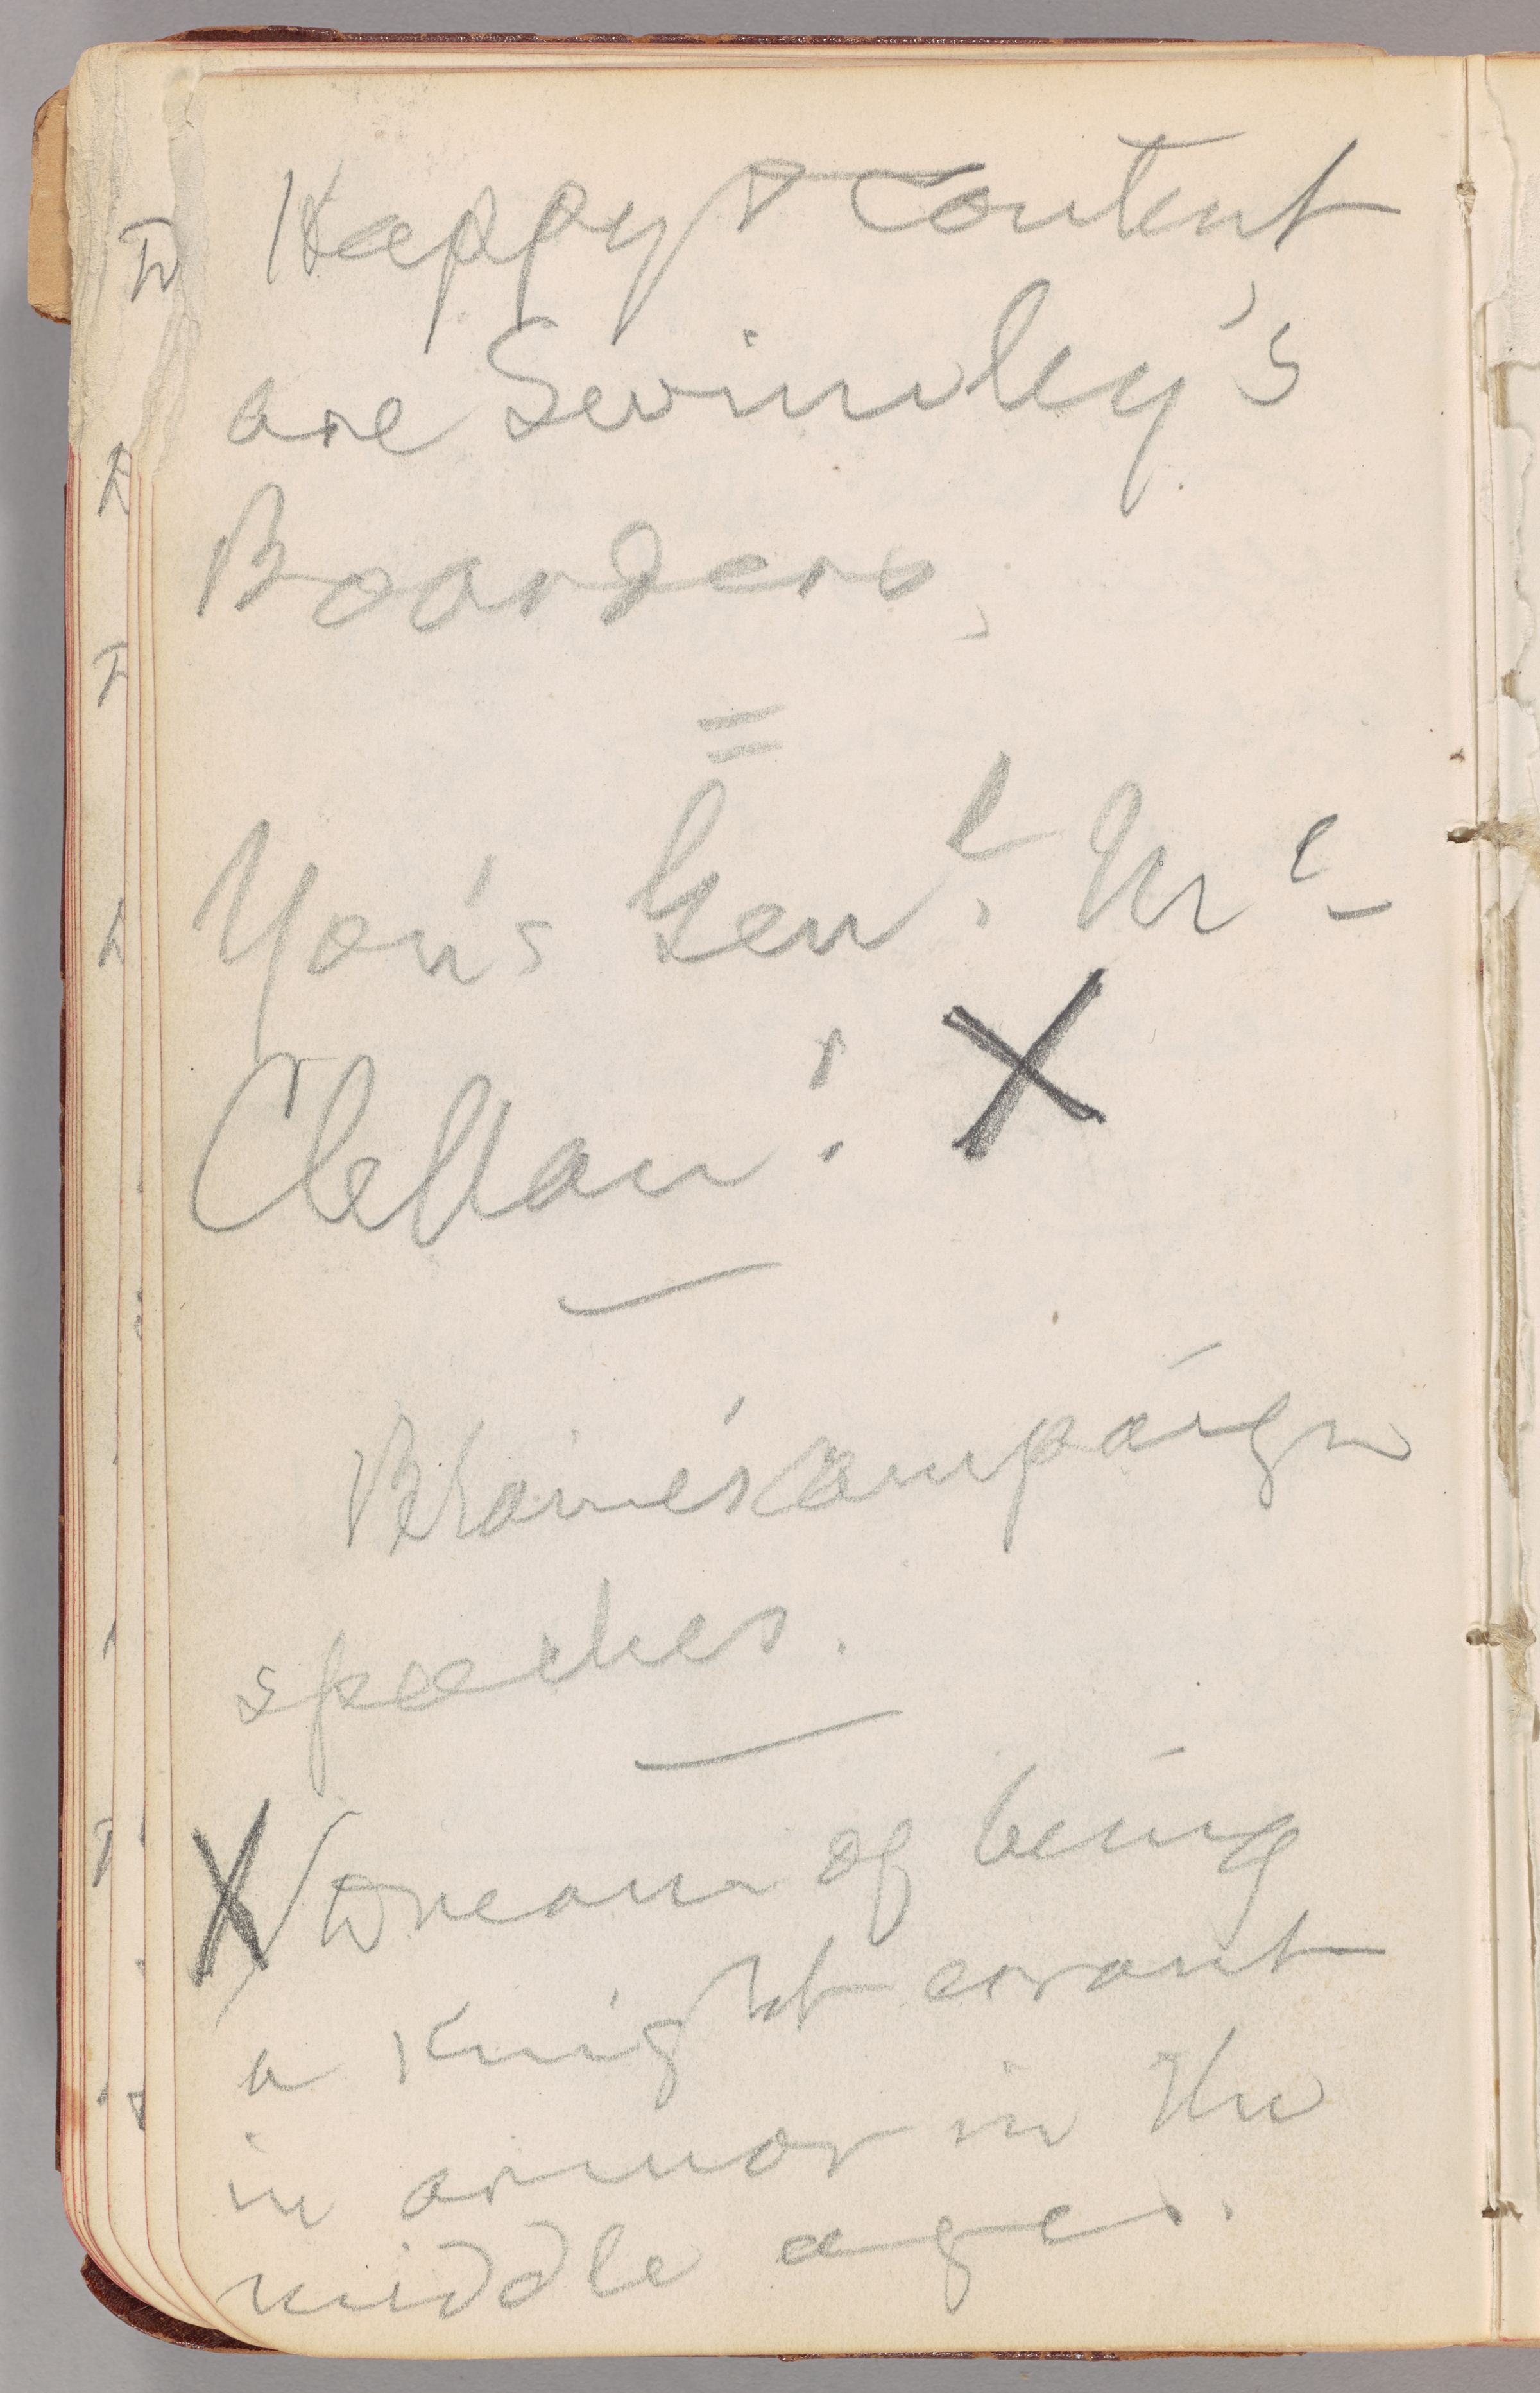 Happy & Content
are Swimley's
Boarders.
=
Yon's Gen^l. M^c
Clellan! X
Blaine's campaign
speeches.
X Dream of being
a knight errant
in armor in the
middle ages.